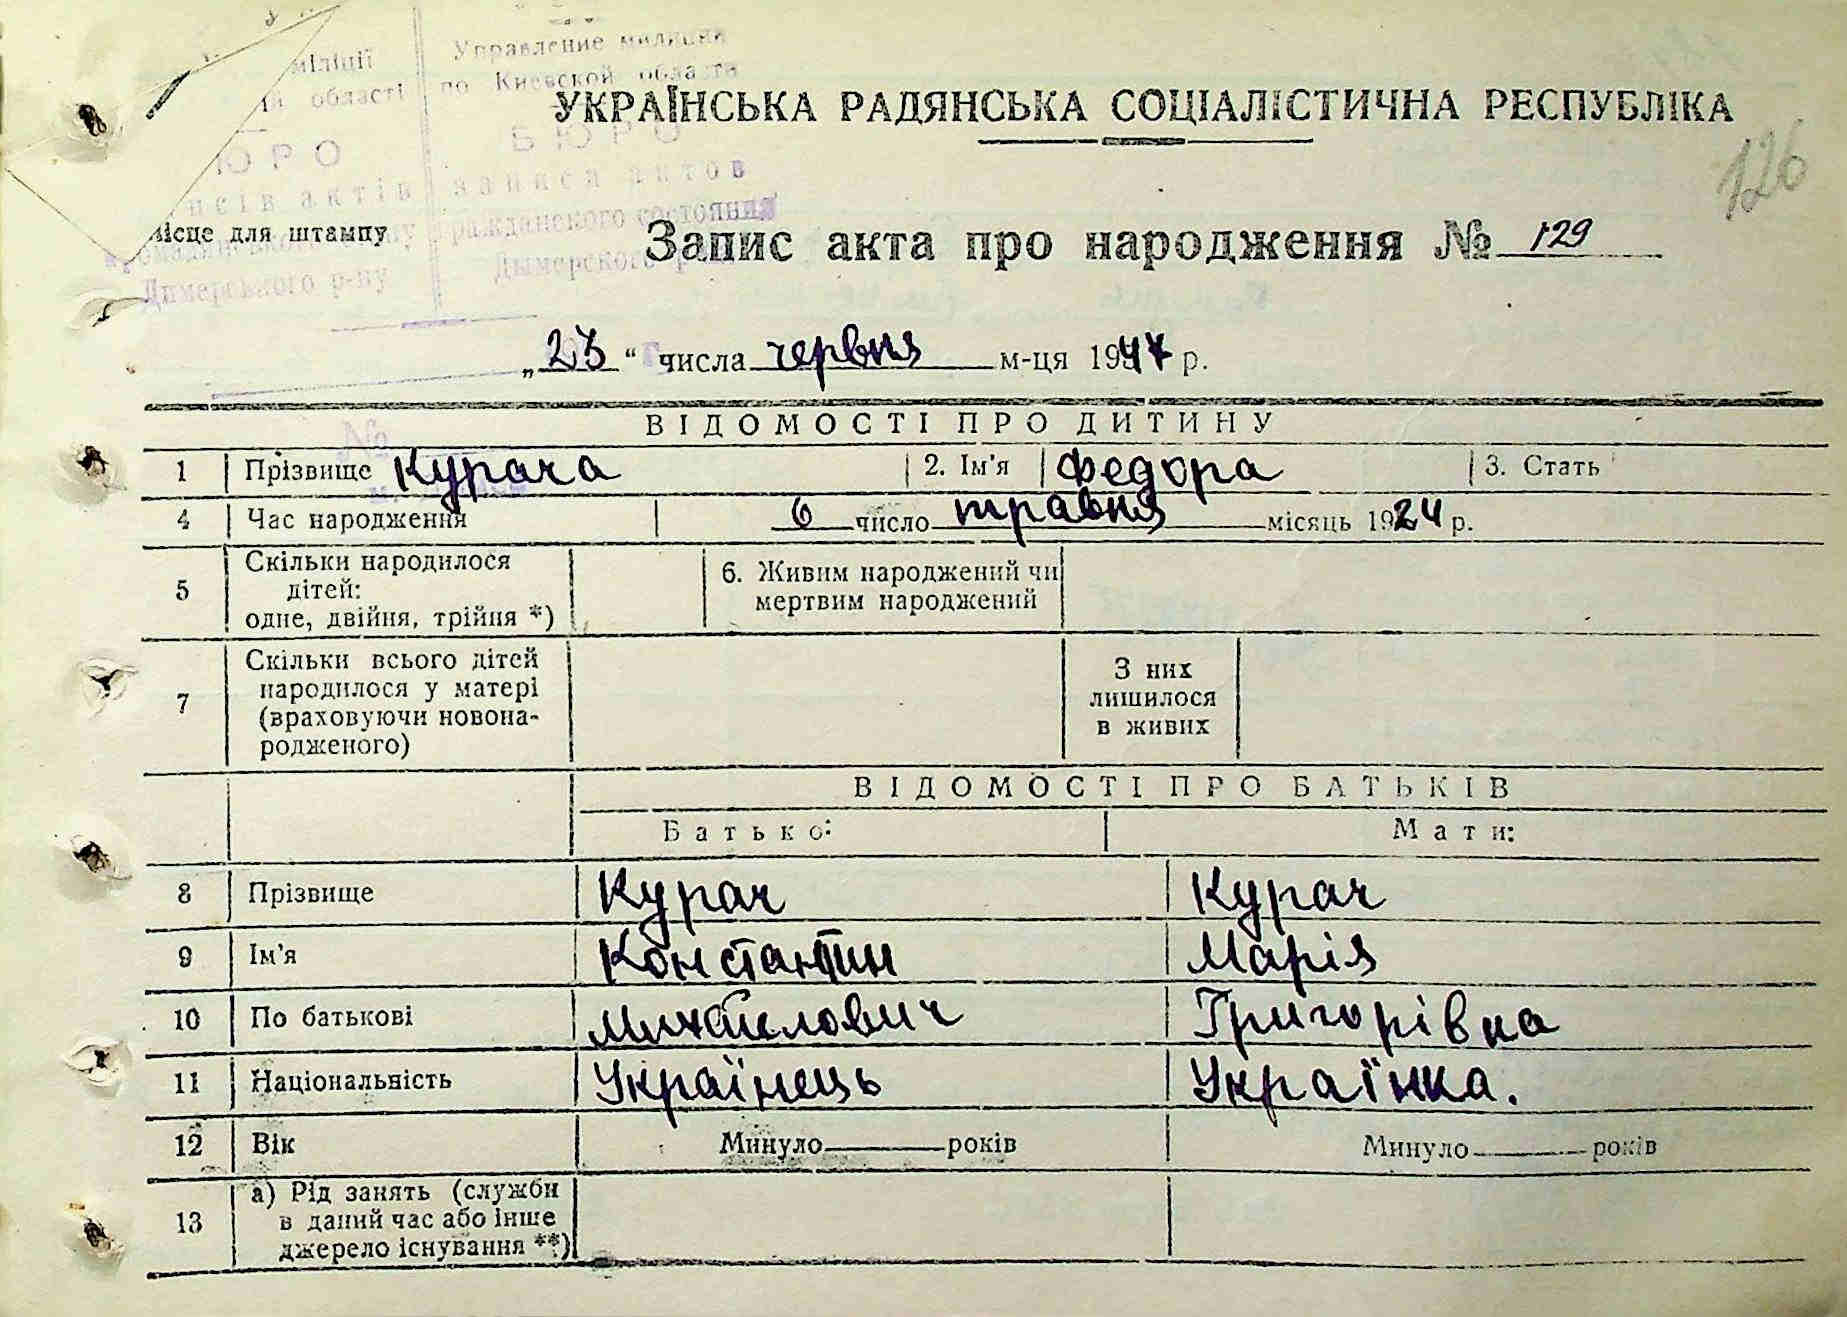 міліції Управление милиции
області по Киевской области
УКРАЇНСЬКА РАДЯНСЬКА СОЦІАЛІСТИЧНА РЕСПУБЛІКА
БЮРО
126
актів записи актов
гражданского состояния
Місце для штампу
Запис акта про народження № 129
Димерського р-ну Дымерского
„23“ числа червня м-ця 1947 р.
ВІДОМОСТІ ПРО ДИТИНУ
№
1 Прізвище Курача 2. Ім'я Федора 3. Стать
4 Час народження 6 число травня місяць 1924 р.
5 Скільки народилося
дітей:
одне, двійня, трійня *)
6. Живим народжений чи
мертвим народжений
7 Скільки всього дітей
народилося у матері
(враховуючи новона-
родженого)
З них
лишилося
в живих
ВІДОМОСТІ ПРО БАТЬКІВ
Батько: Мати:
8 Прізвище Курач Курач
9 Ім'я Константин Марія
10 По батькові Михайлович Григорівна
11 Національність Українець Українка.
12 Вік Минуло років Минуло років
13 а) Рід занять (служби
в даний час або інше
джерело існування **)